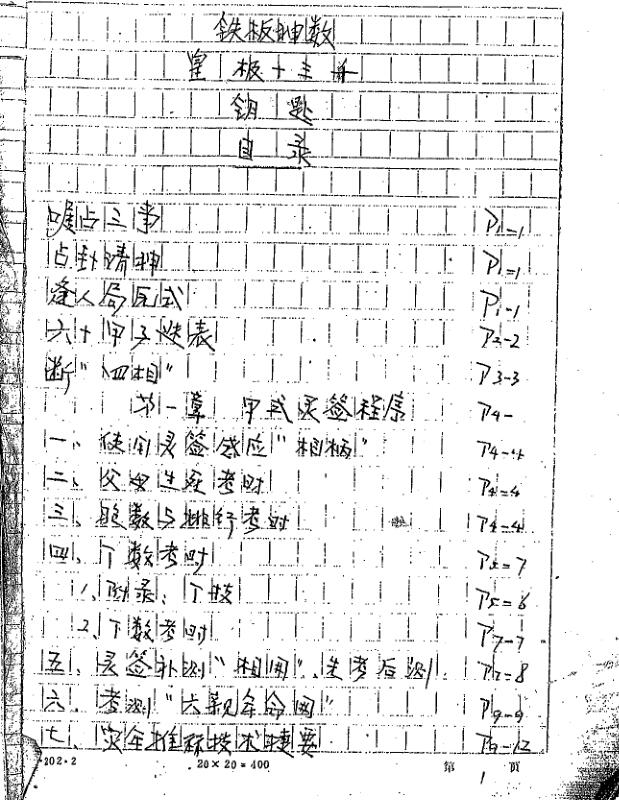 铁板神数
皇极十三册
钥匙
目录
占三事 P1=1
占卦请神 P1=1
逢人局 式 P1-1
六十甲子 表 P2-2
断"四相" P3-3
第一章 甲式灵签程序 P4-
一、使用灵签感应"相柄" P4-4
二、父母生死考时 P4=4
三、 数与排行考时 P4=4
四、个数考时 P5=7
1、附录: 个 P5=6
2、个数考时 P7-7
五、灵签补测"相闻"、先考后测. P7=8
六、考测"六亲年命 " P9-9
七、灾年推 技术 要 P9-12
202·2 20×20=400 第 1 页